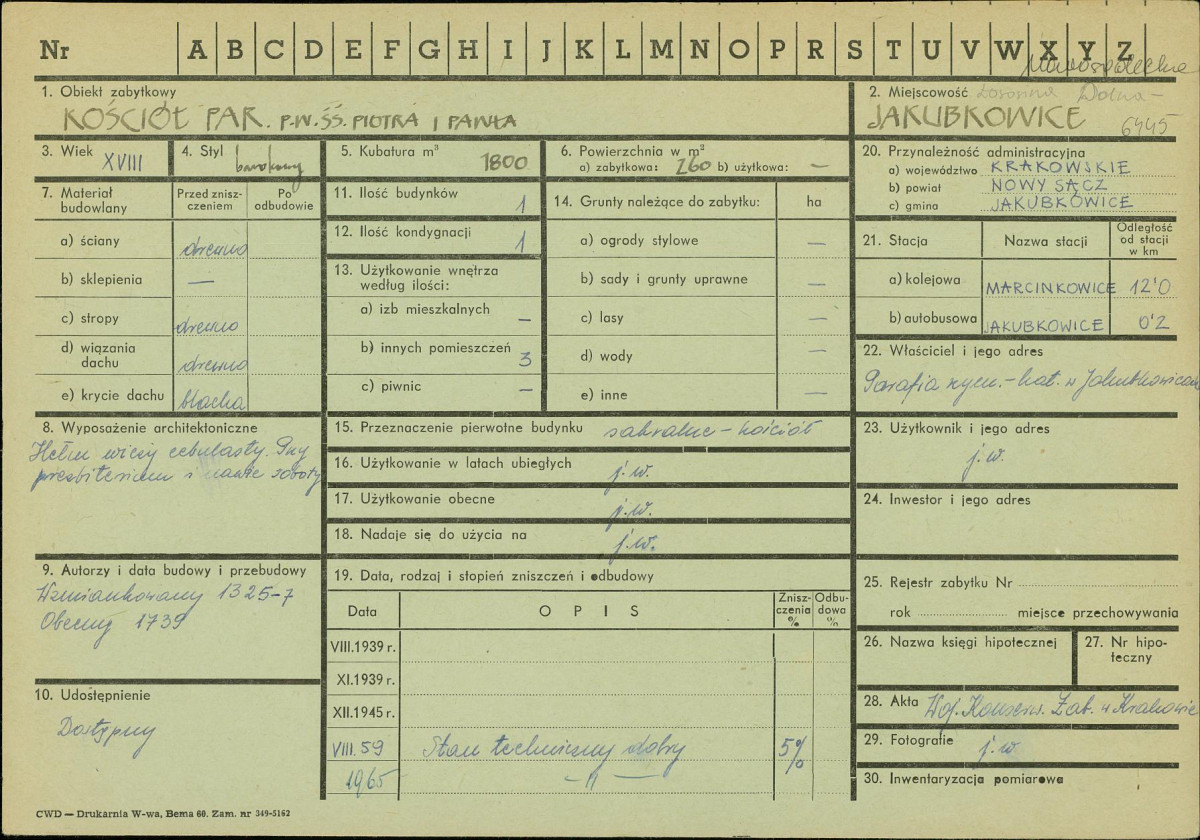 Nr A B C D E F G H I J K L M N O P R S T U V W X Y Z
Małopolskie
1. Obiekt zabytkowy
KOŚCIÓŁ PAR. P.W. ŚŚ. PIOTRA I PAWŁA
2. Miejscowość Łososina Dolna -
JAKUBKOWICE 6445
3. Wiek XVIII
4. Styl barokowy
5. Kubatura m³ 1800
6. Powierzchnia w m²
a) zabytkowa: 260 b) użytkowa: —
7. Materiał budowlany
Przed zniszczeniem
Po odbudowie
a) ściany drewno
b) sklepienia —
c) stropy drewno
d) wiązania dachu drewno
e) krycie dachu blacha
8. Wyposażenie architektoniczne
Hełm wieży cebulasty. Przy
prezbiterium i nawie soboty
9. Autorzy i data budowy i przebudowy
Wzmiankowany 1325-7
Obecny 1739
10. Udostępnienie
Dostępny
11. Ilość budynków 1
12. Ilość kondygnacji 1
13. Użytkowanie wnętrza
według ilości:
a) izb mieszkalnych —
b) innych pomieszczeń 3
c) piwnic —
14. Grunty należące do zabytku: ha
a) ogrody stylowe —
b) sady i grunty uprawne —
c) lasy —
d) wody —
e) inne —
15. Przeznaczenie pierwotne budynku sakralne - kościół
16. Użytkowanie w latach ubiegłych j.w.
17. Użytkowanie obecne j.w.
18. Nadaje się do użycia na j.w.
19. Data, rodzaj i stopień zniszczeń i odbudowy
Data OPIS Zniszczenia % Odbudowa %
VIII.1939 r.
XI.1939 r.
XII.1945 r.
VIII.59 Stan techniczny dobry 5%
1965 — " —
20. Przynależność administracyjna
a) województwo KRAKOWSKIE
b) powiat NOWY SĄCZ
c) gmina JAKUBKOWICE
21. Stacja Nazwa stacji Odległość od stacji w km
a) kolejowa MARCINKOWICE 12'0
b) autobusowa JAKUBKOWICE 0'2
22. Właściciel i jego adres
Parafia rzym.-kat. w Jakubkowicach
23. Użytkownik i jego adres
j.w.
24. Inwestor i jego adres
25. Rejestr zabytku Nr
rok miejsce przechowywania
26. Nazwa księgi hipotecznej
27. Nr hipoteczny
28. Akta Woj. Konserw. Zab. w Krakowie
29. Fotografie j.w.
30. Inwentaryzacja pomiarowa
CWD — Drukarnia W-wa, Bema 60. Zam. nr 349-5162